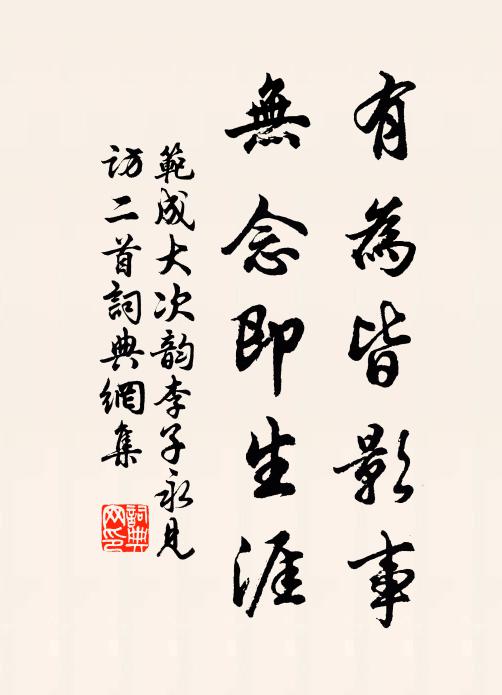 有為皆影事
無念即生涯
範成大次韵李子永見
訪二首詞典網集
詞典
网印